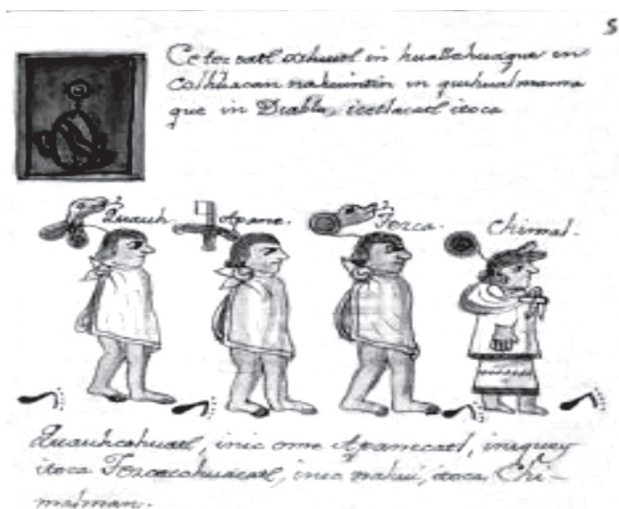 5
Ce tecpatl xihuitl in huallehuaque in
Colhuacan nahuintin in quihualmama
que in Diablo, icetlacatl itoca
Quauh. Apane. Tezca. Chimal.
Quauhcohuatl, inic ome Apanecatl, iniquey
itoca Tezcacohuacatl, inic nahui, itoca Chi-
malman.